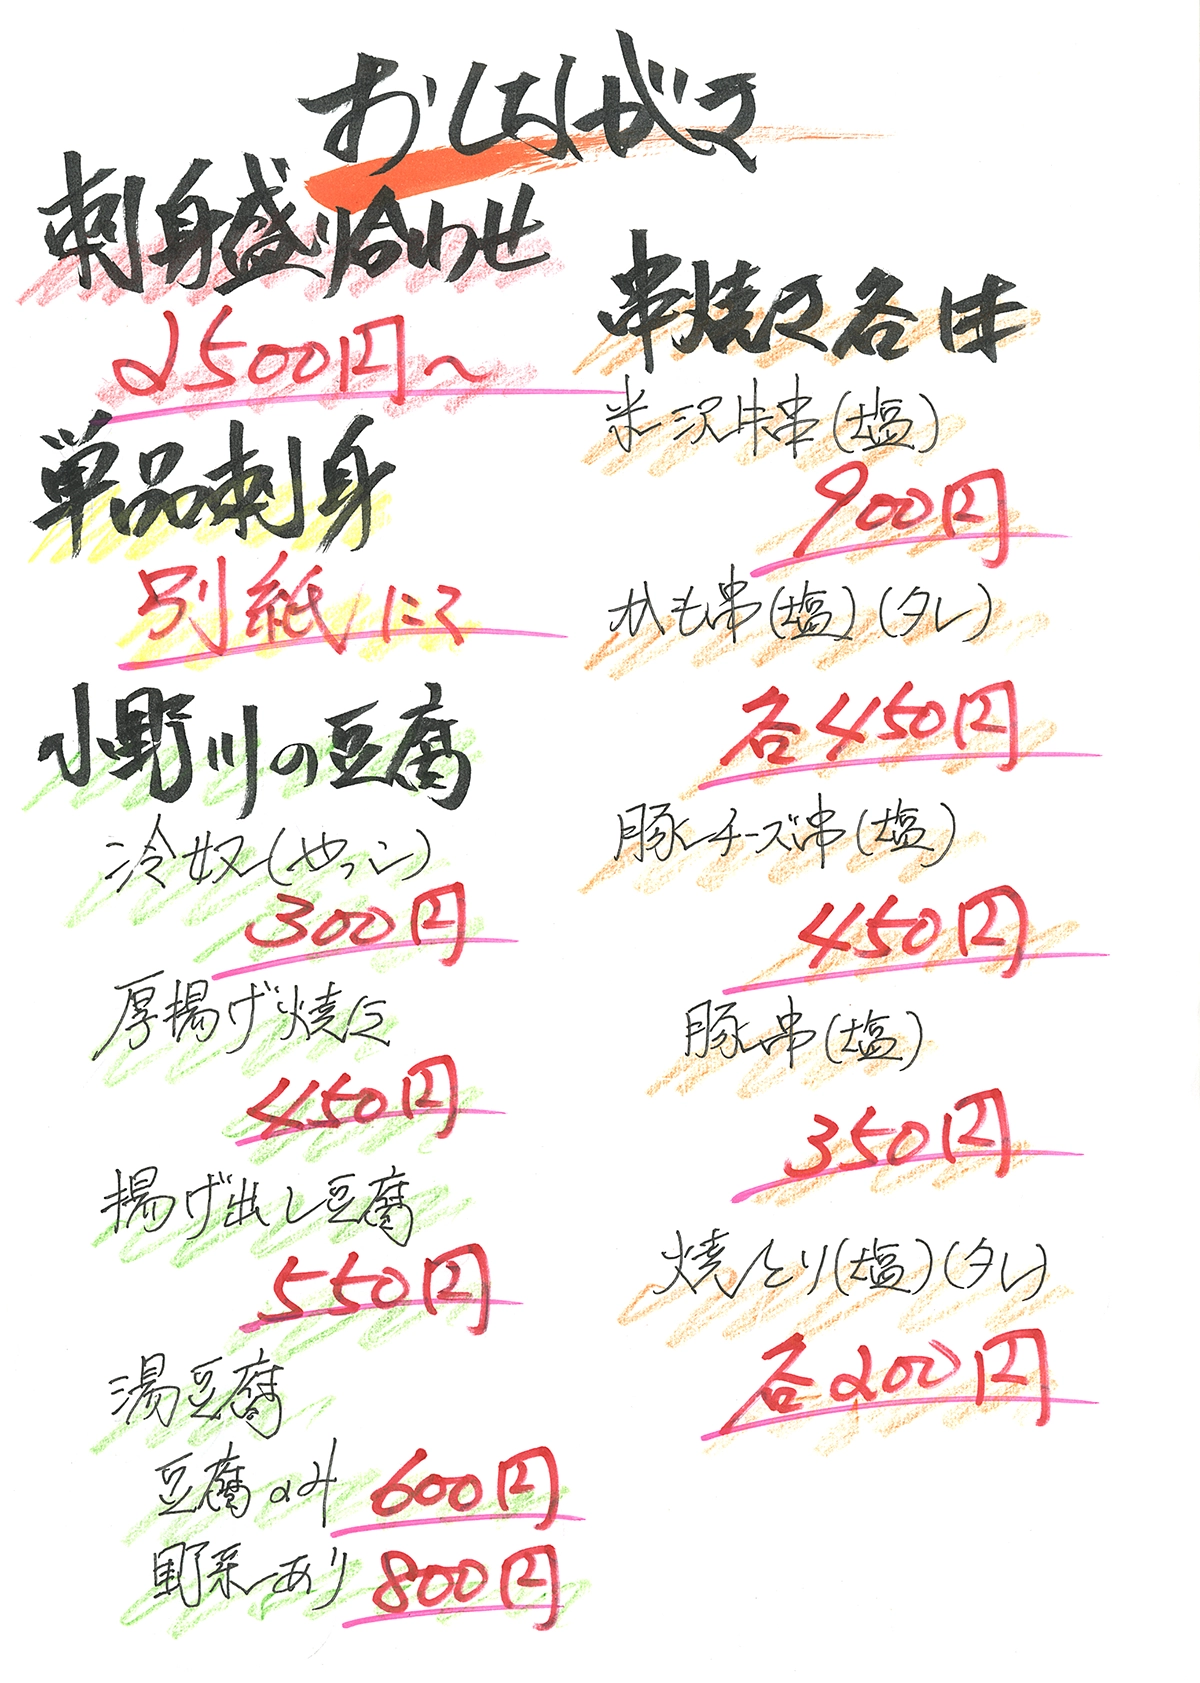 おしながき
刺身盛り合わせ
2500円～
単品刺身
別紙にて
小野川の豆腐
冷奴(やっこ)
300円
厚揚げ焼き
450円
揚げ出し豆腐
550円
湯豆腐
豆腐のみ 600円
野菜あり 800円
串焼き各1本
米沢牛串(塩)
900円
かも串(塩)(タレ)
各450円
豚チーズ串(塩)
450円
豚串(塩)
350円
焼とり(塩)(タレ)
各200円